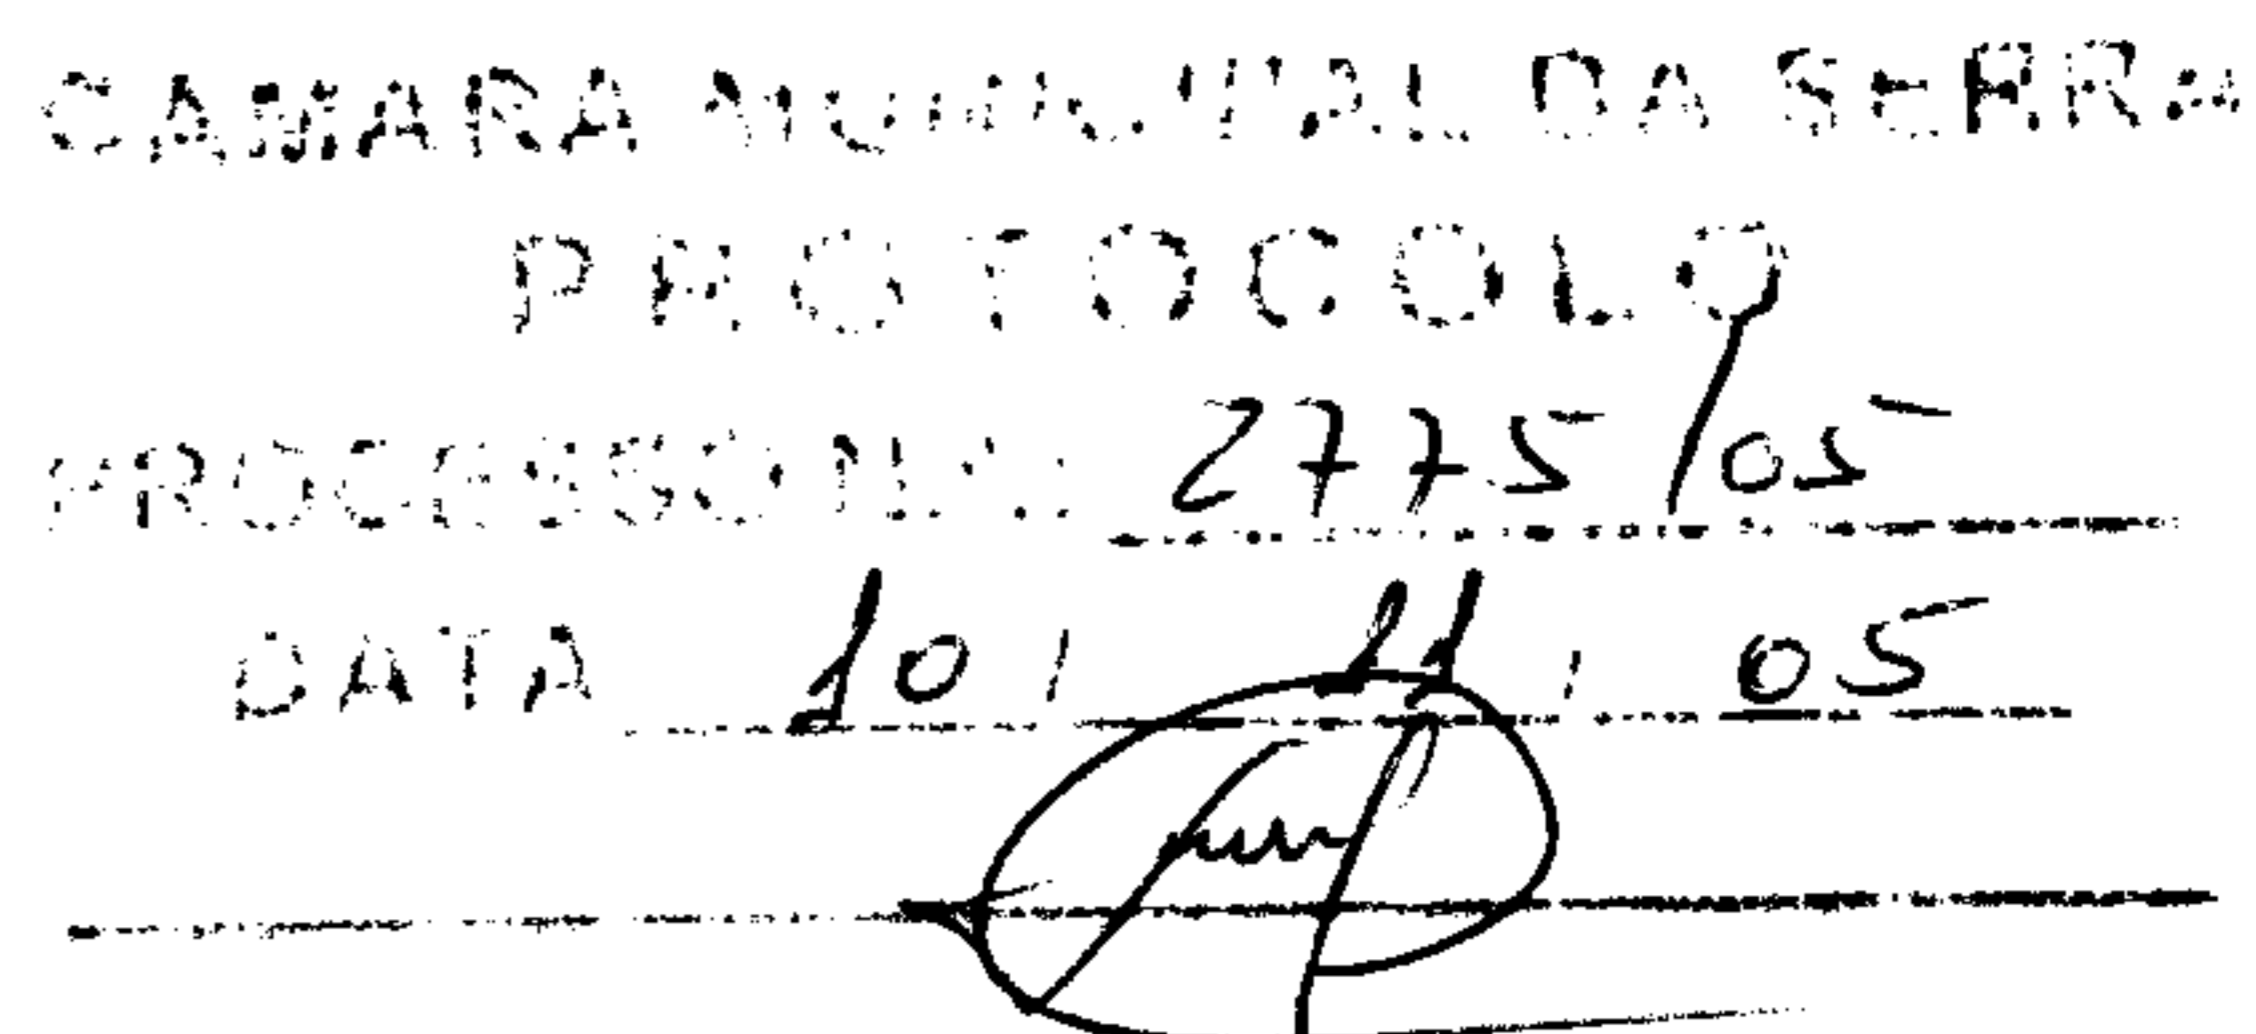 CAMARA MUNICIPAL DA SERRA
PROTOCOLO
PROCESSO N.º: 2775/05
DATA 10 / 11 / 05